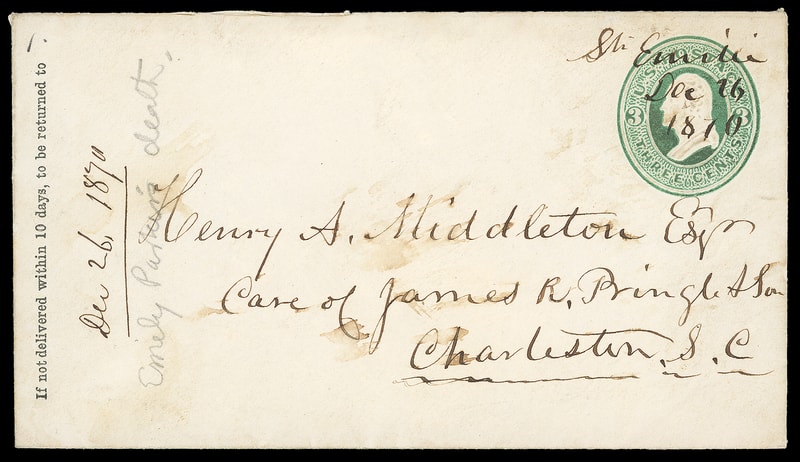 Str Emilie
Dec 26
1870
U.S. POSTAGE
3 3
THREE CENTS
If not delivered within 10 days, to be returned to
Dec 26, 1870
Emily death.
Henry A. Middleton Esqr
Care of James R. Pringle & Son
Charleston, S. C